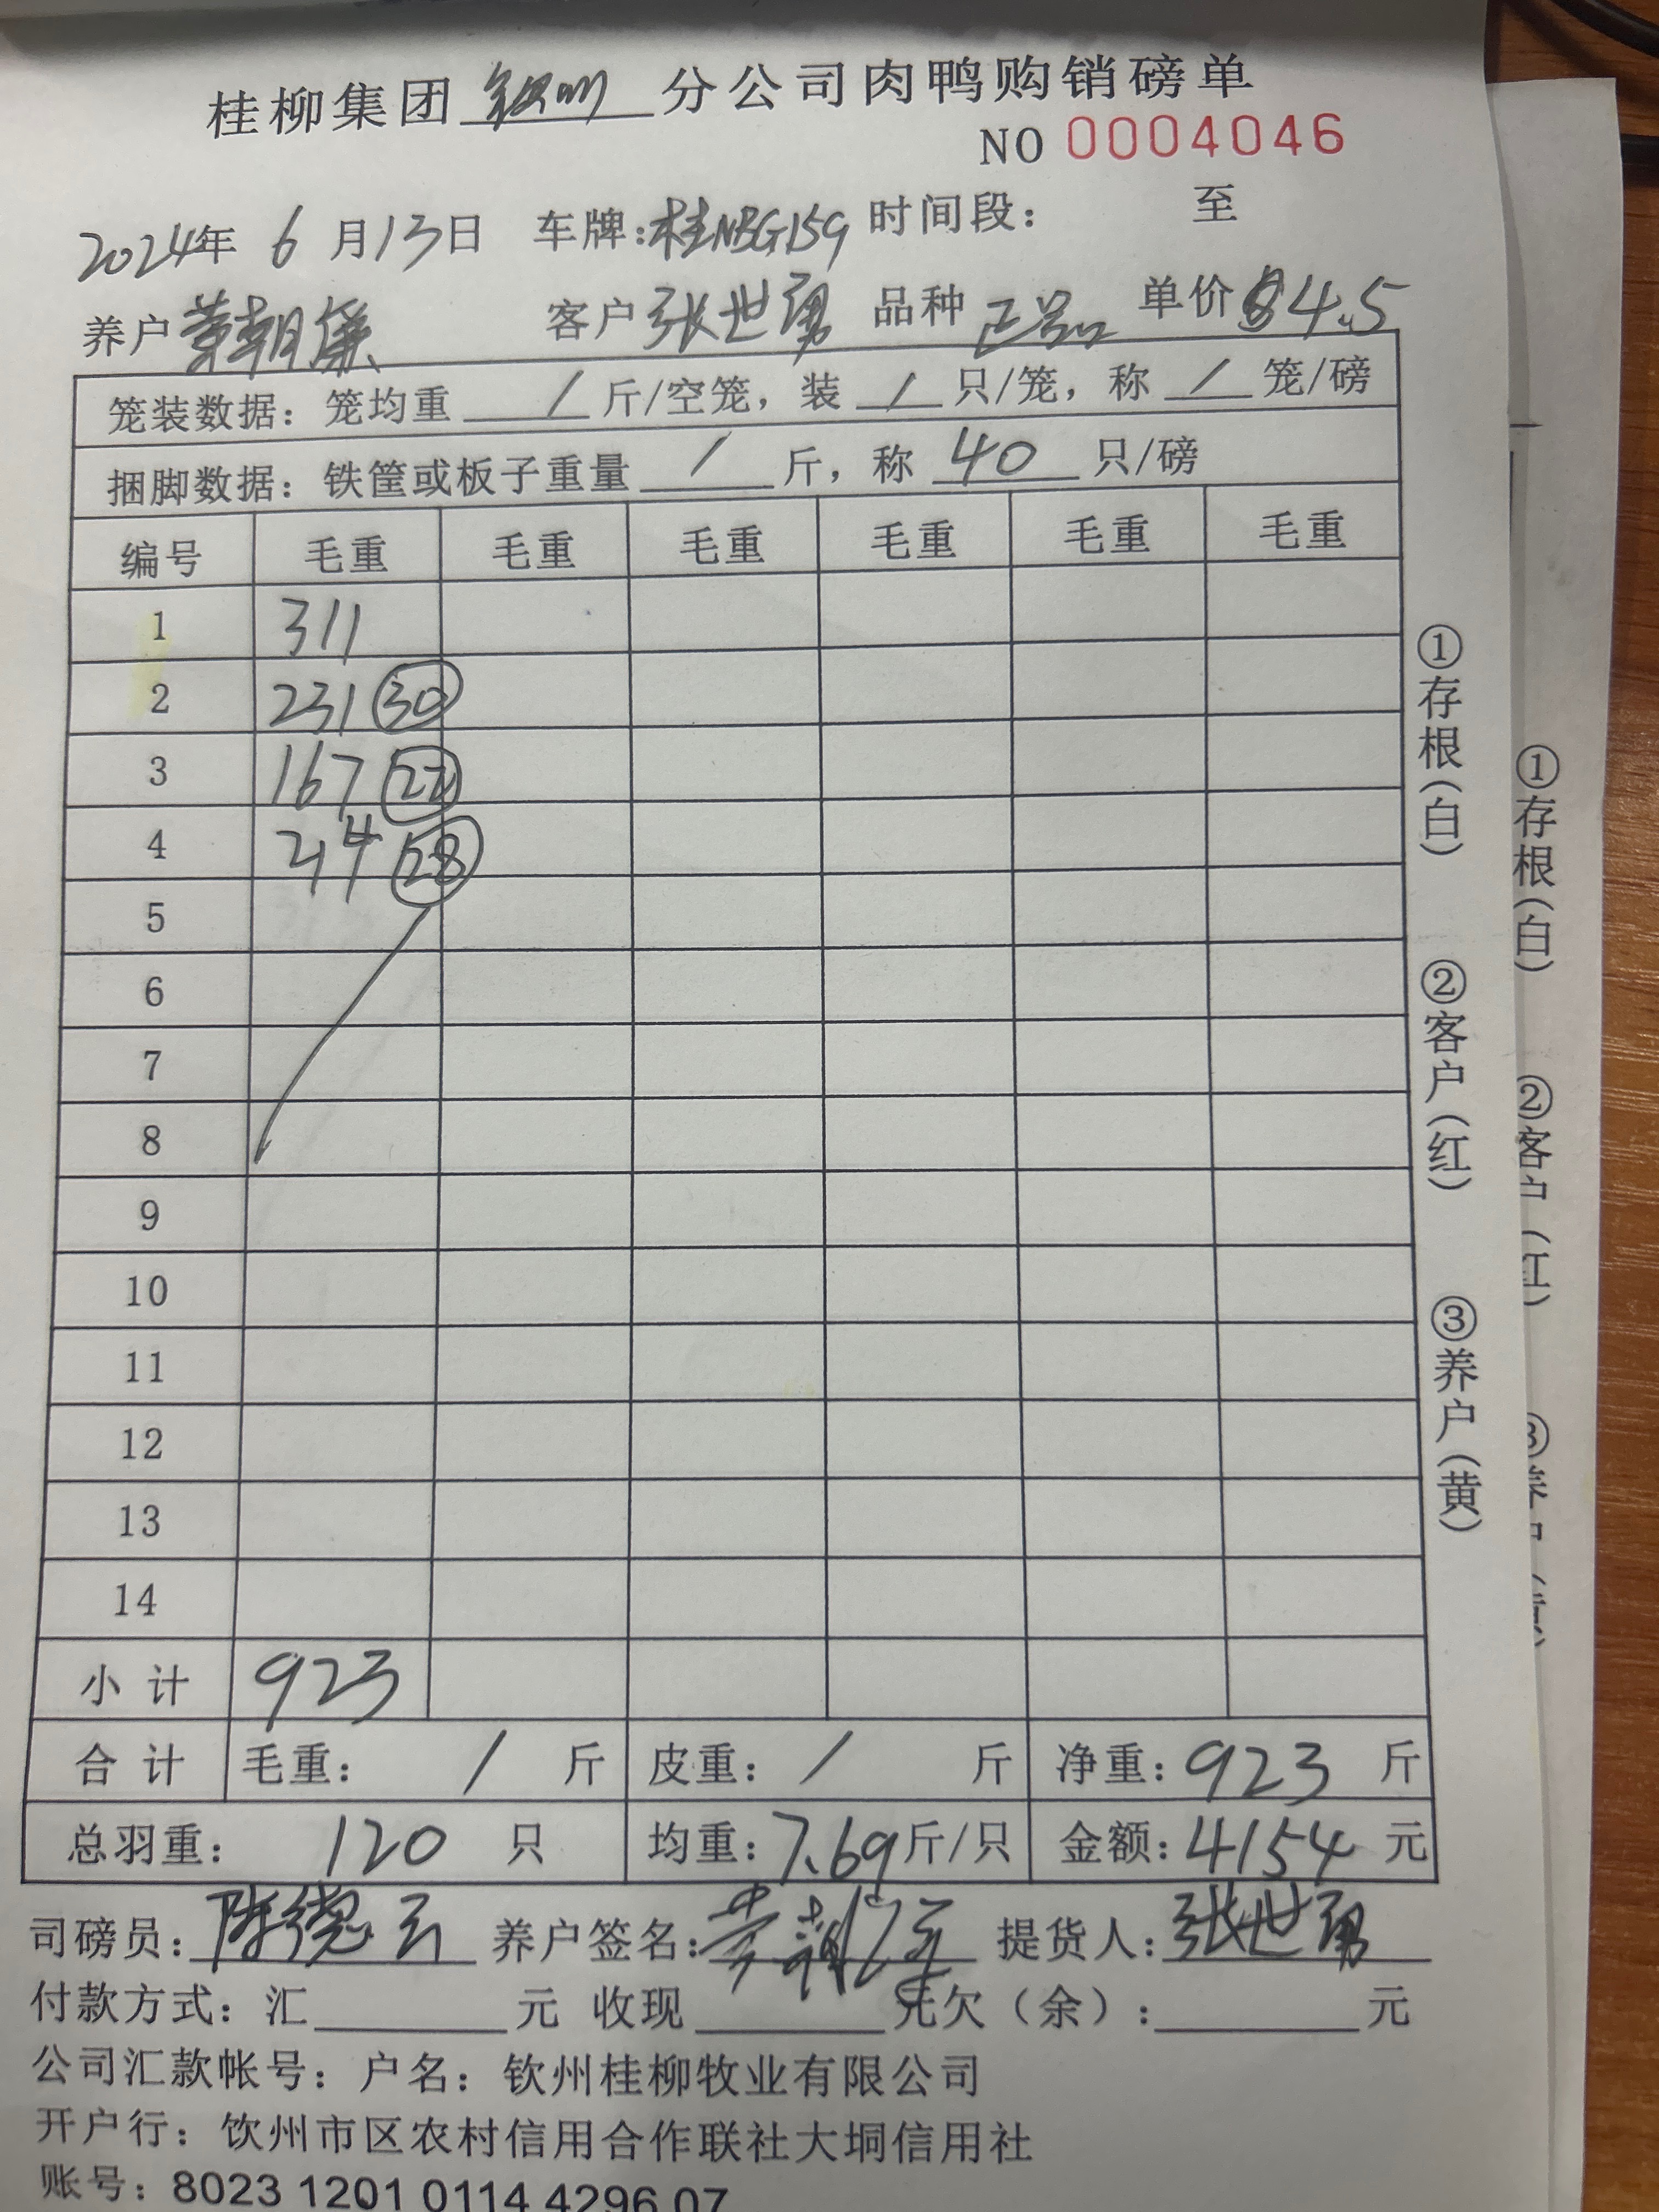 桂柳集团 钦州 分公司肉鸭购销磅单
NO 0004046
2024年 6 月 13 日 车牌:桂NBG159 时间段: 至
养户 黄朝 客户 张世勇 品种 正品 单价 4.5
笼装数据: 笼均重 / 斤/空笼, 装 / 只/笼, 称 / 笼/磅
捆脚数据: 铁筐或板子重量 / 斤, 称 40 只/磅
编号 毛重 毛重 毛重 毛重 毛重 毛重
1 311
2 231 30
3 167 22
4 214 28
5
6
7
8
9
10
11
12
13
14
小 计 923
合 计 毛重: / 斤 皮重: / 斤 净重: 923 斤
总羽重: 120 只 均重: 7.69 斤/只 金额: 4154 元
司磅员: 陈德云 养户签名: 提货人: 张世勇
付款方式: 汇 元 收现 元欠(余): 元
公司汇款帐号: 户名: 钦州桂柳牧业有限公司
开户行: 钦州市区农村信用合作联社大垌信用社
账号: 8023 1201 0114 4296 07
①存根(白) ②客户(红) ③养户(黄)
①存根(白) ②客户